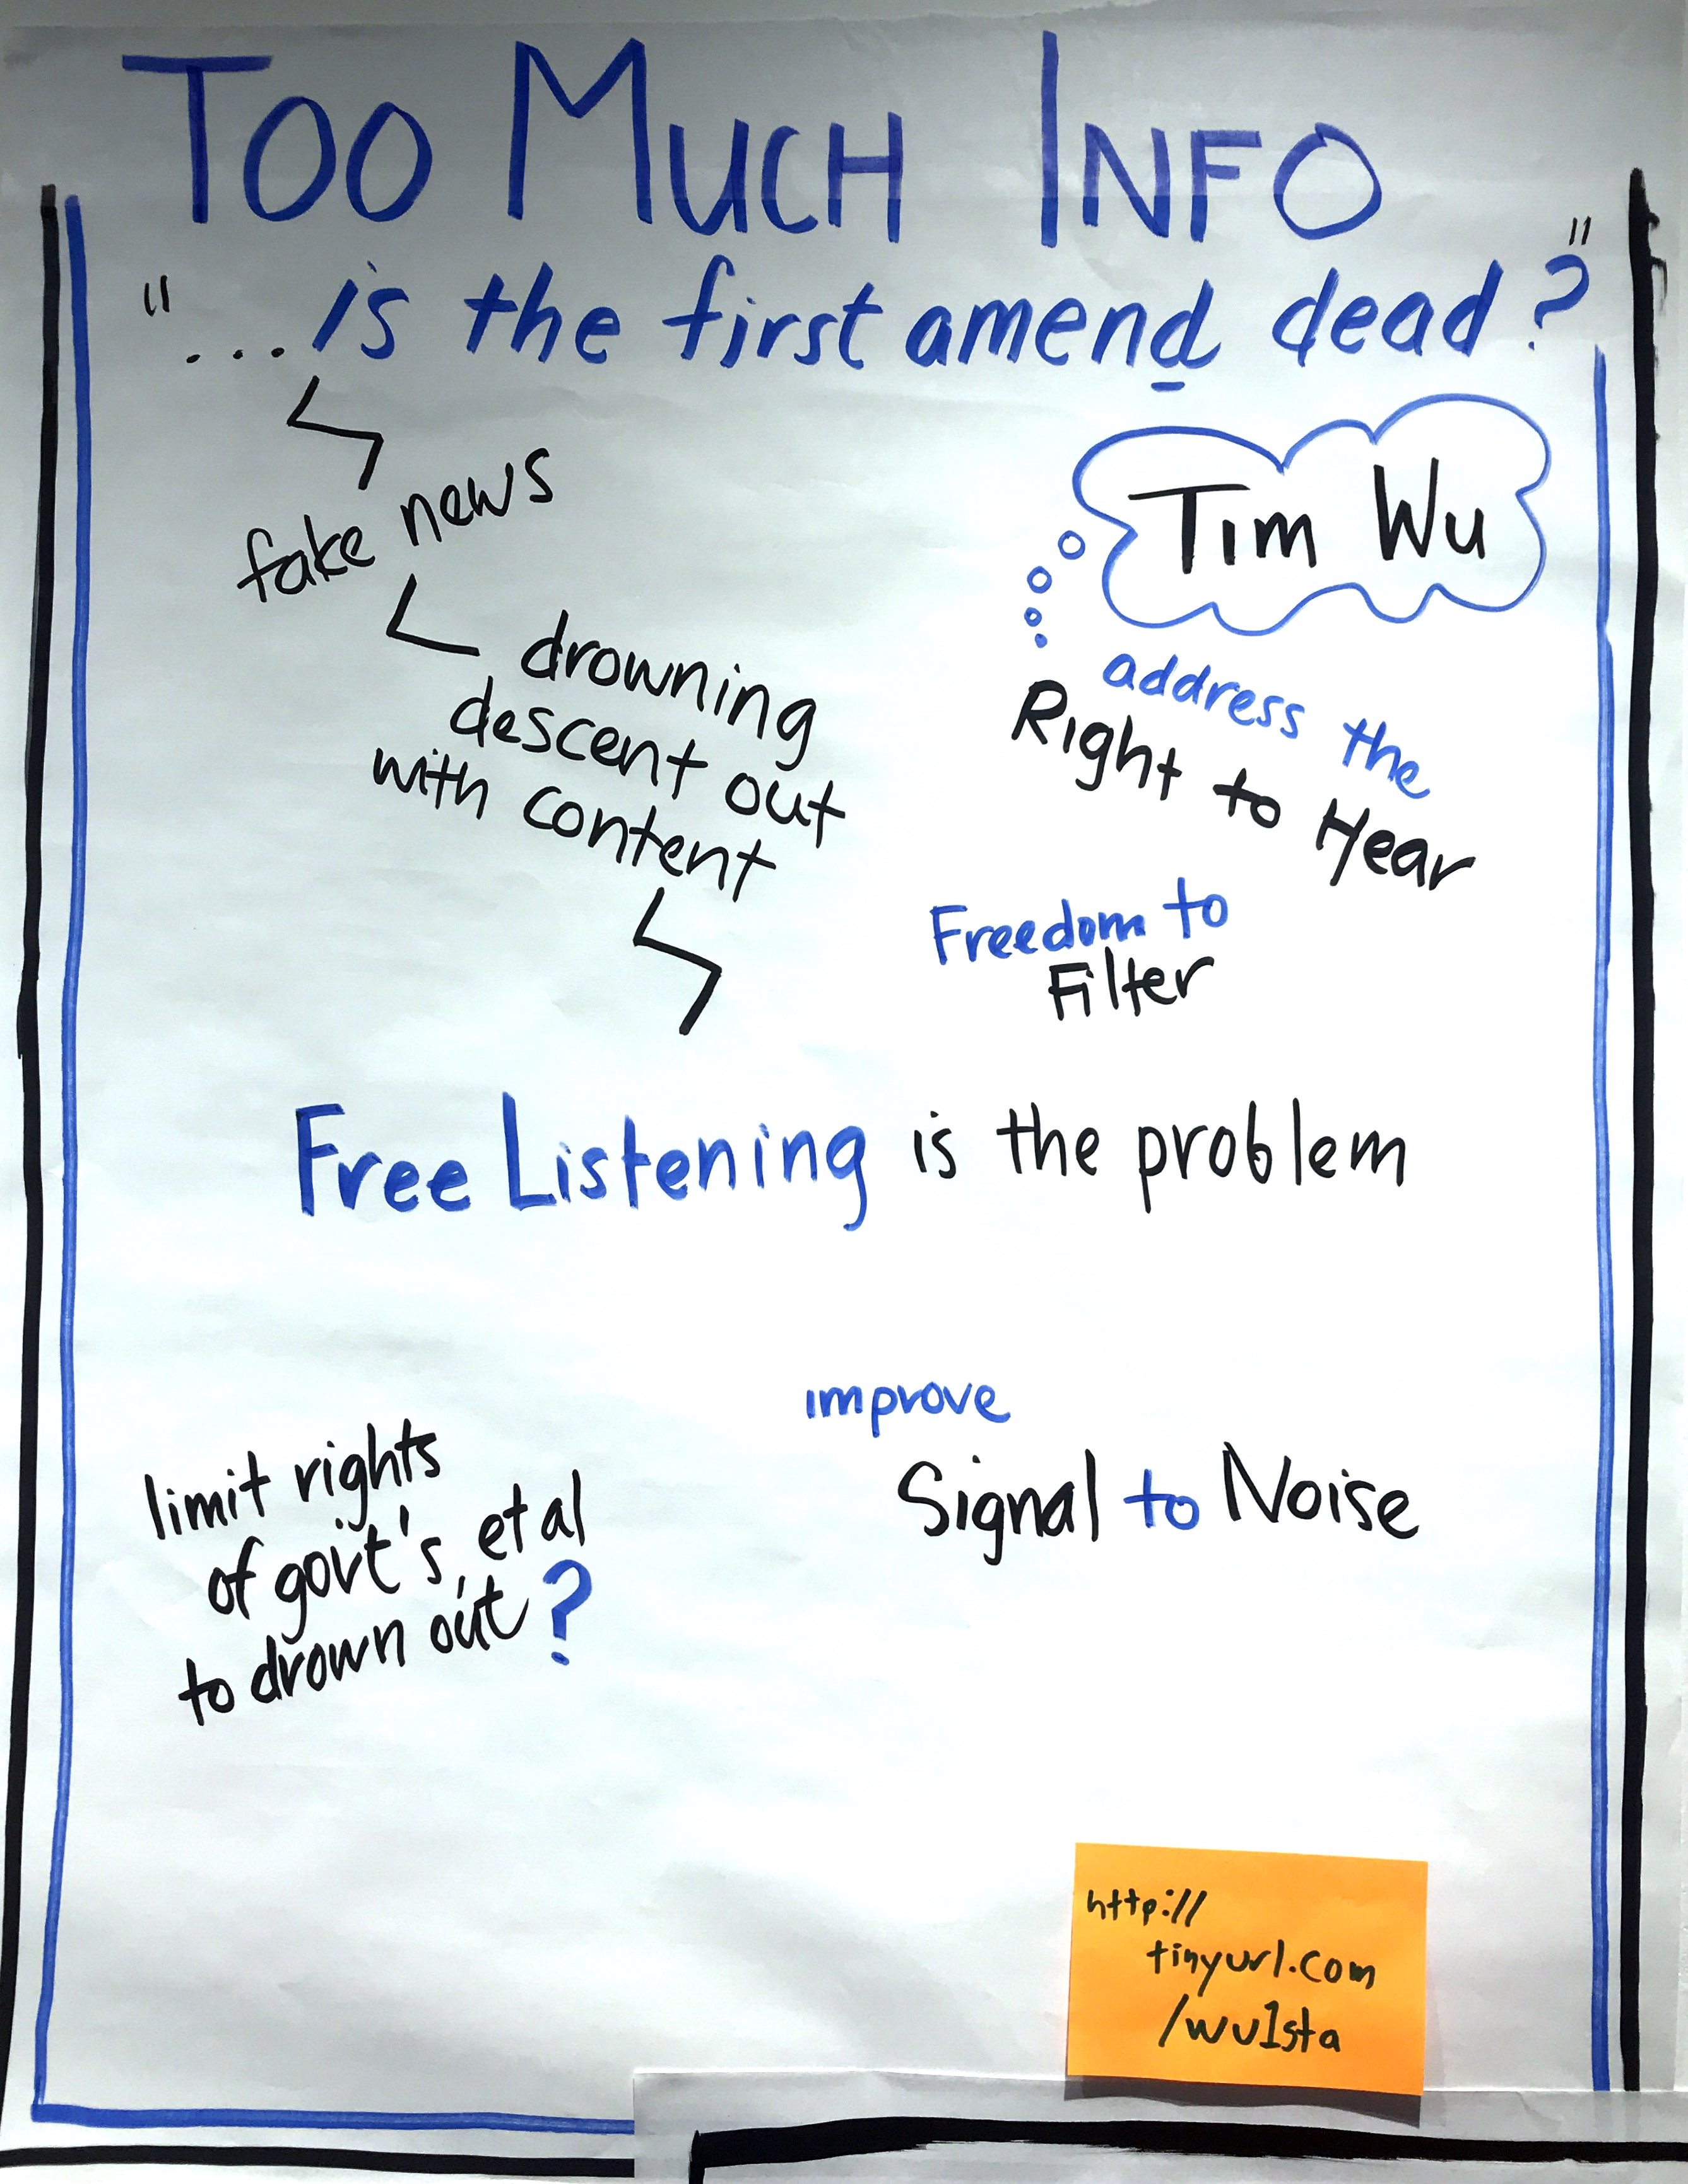 TOO MUCH INFO
"...is the first amend dead?"
fake news
drowning
descent out
with content
Tim Wu
address the
Right to Hear
Freedom to
Filter
Free Listening is the problem
limit rights
of govt's, et al
to drown out?
improve
Signal to Noise
http://
tinyurl.com
/wu1sta